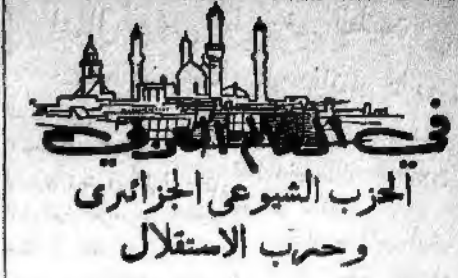 في العالم العربي
الحزب الشيوعى الجزائرى
وحرب الاستقلال